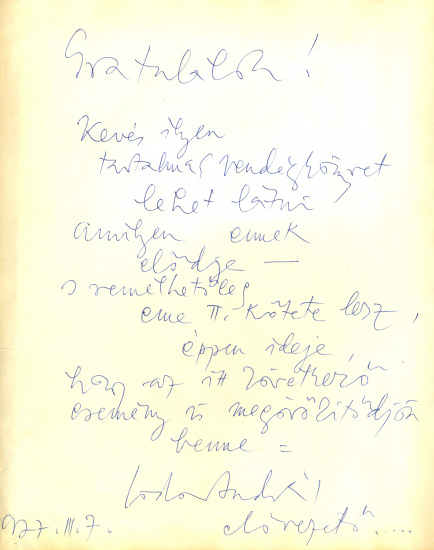 Gratulálok!
Kevés ilyen
tartalmas vendégkönyvet
lehet látni
amilyen ennek
elődje —
s remélhetőleg
eme II. kötete lesz,
éppen ideje,
hogy az itt következő
esemény is megörökítődjön
benne =
András
977. III. 7. elővezető.....